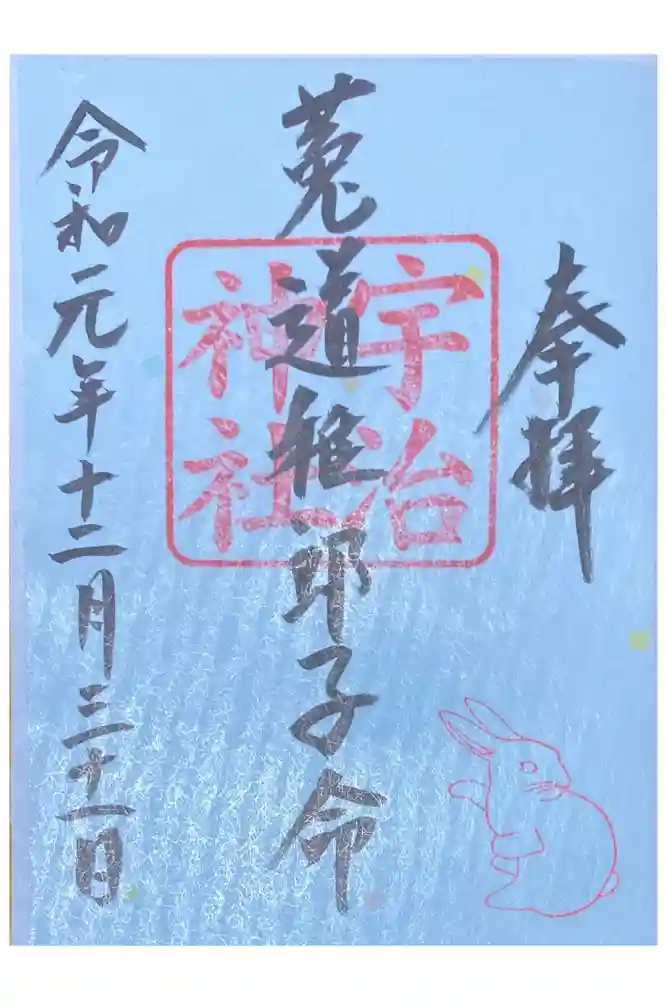 奉拝
菟道稚郎子命
宇治
神社
令和元年十二月三十一日